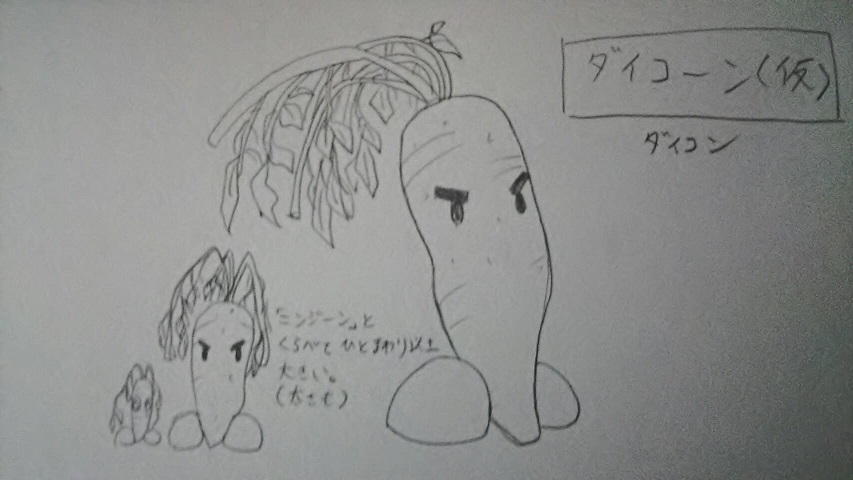 ダイコーン(仮)
ダイコン
「ニンジーン」と
くらべて ひとまわり以上
大きい。
(太さも)